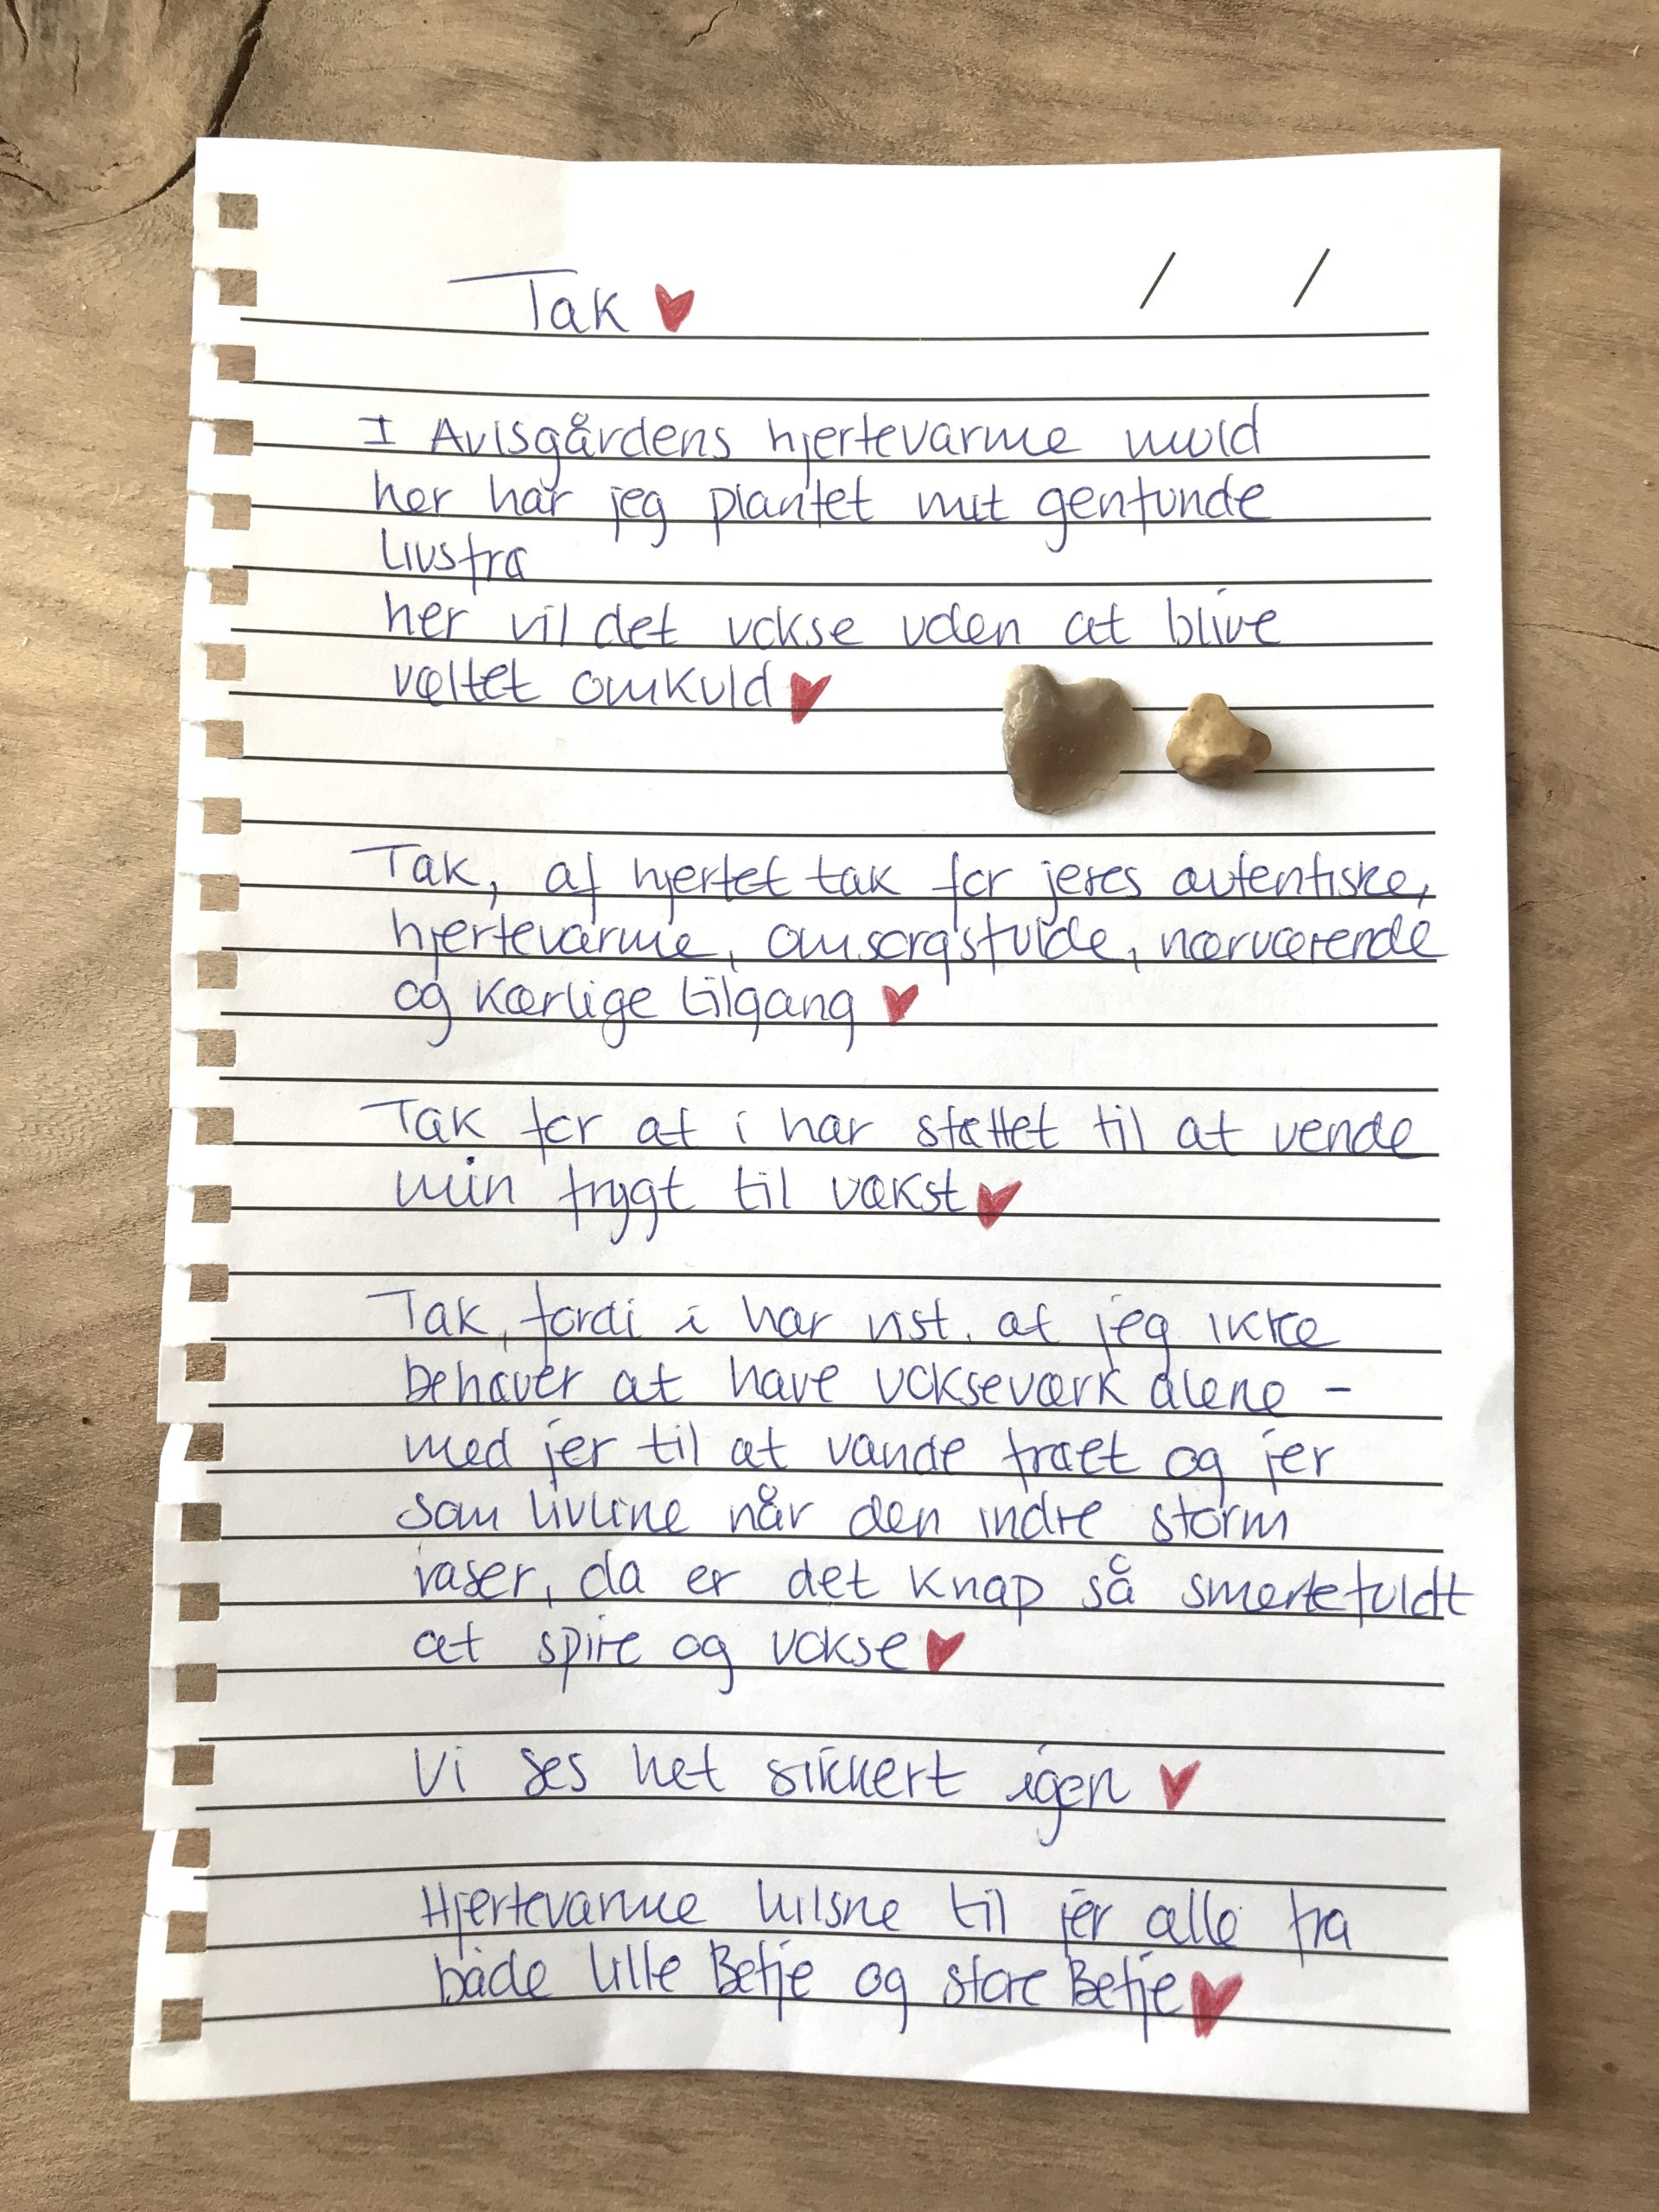 Tak ♥
/ /
I Avlsgårdens hjertevarme muld
her har jeg plantet mit genfunde
Livstræ
her vil det vokse uden at blive
væltet omkuld ♥
Tak, af hjertet tak for jeres autentiske,
hjertevarme, omsorgsfulde, nærværende
og kærlige tilgang ♥
Tak for at i har støttet til at vende
min frygt til vækst ♥
Tak, fordi i har vist, at jeg ikke
behøver at have vokseværk alene -
med jer til at vande træet og jer
som livline når den indre storm
raser, da er det knap så smertefuldt
at spire og vokse ♥
Vi ses helt sikkert igen ♥
Hjertevarme hilsne til jer alle fra
både lille Betje og store Betje ♥